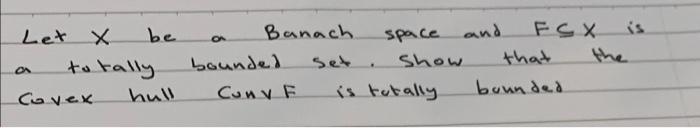 Let X be a Banach space and F ⊆ X is
a totally bounded set. Show that the
Covex hull Conv F is totally bounded